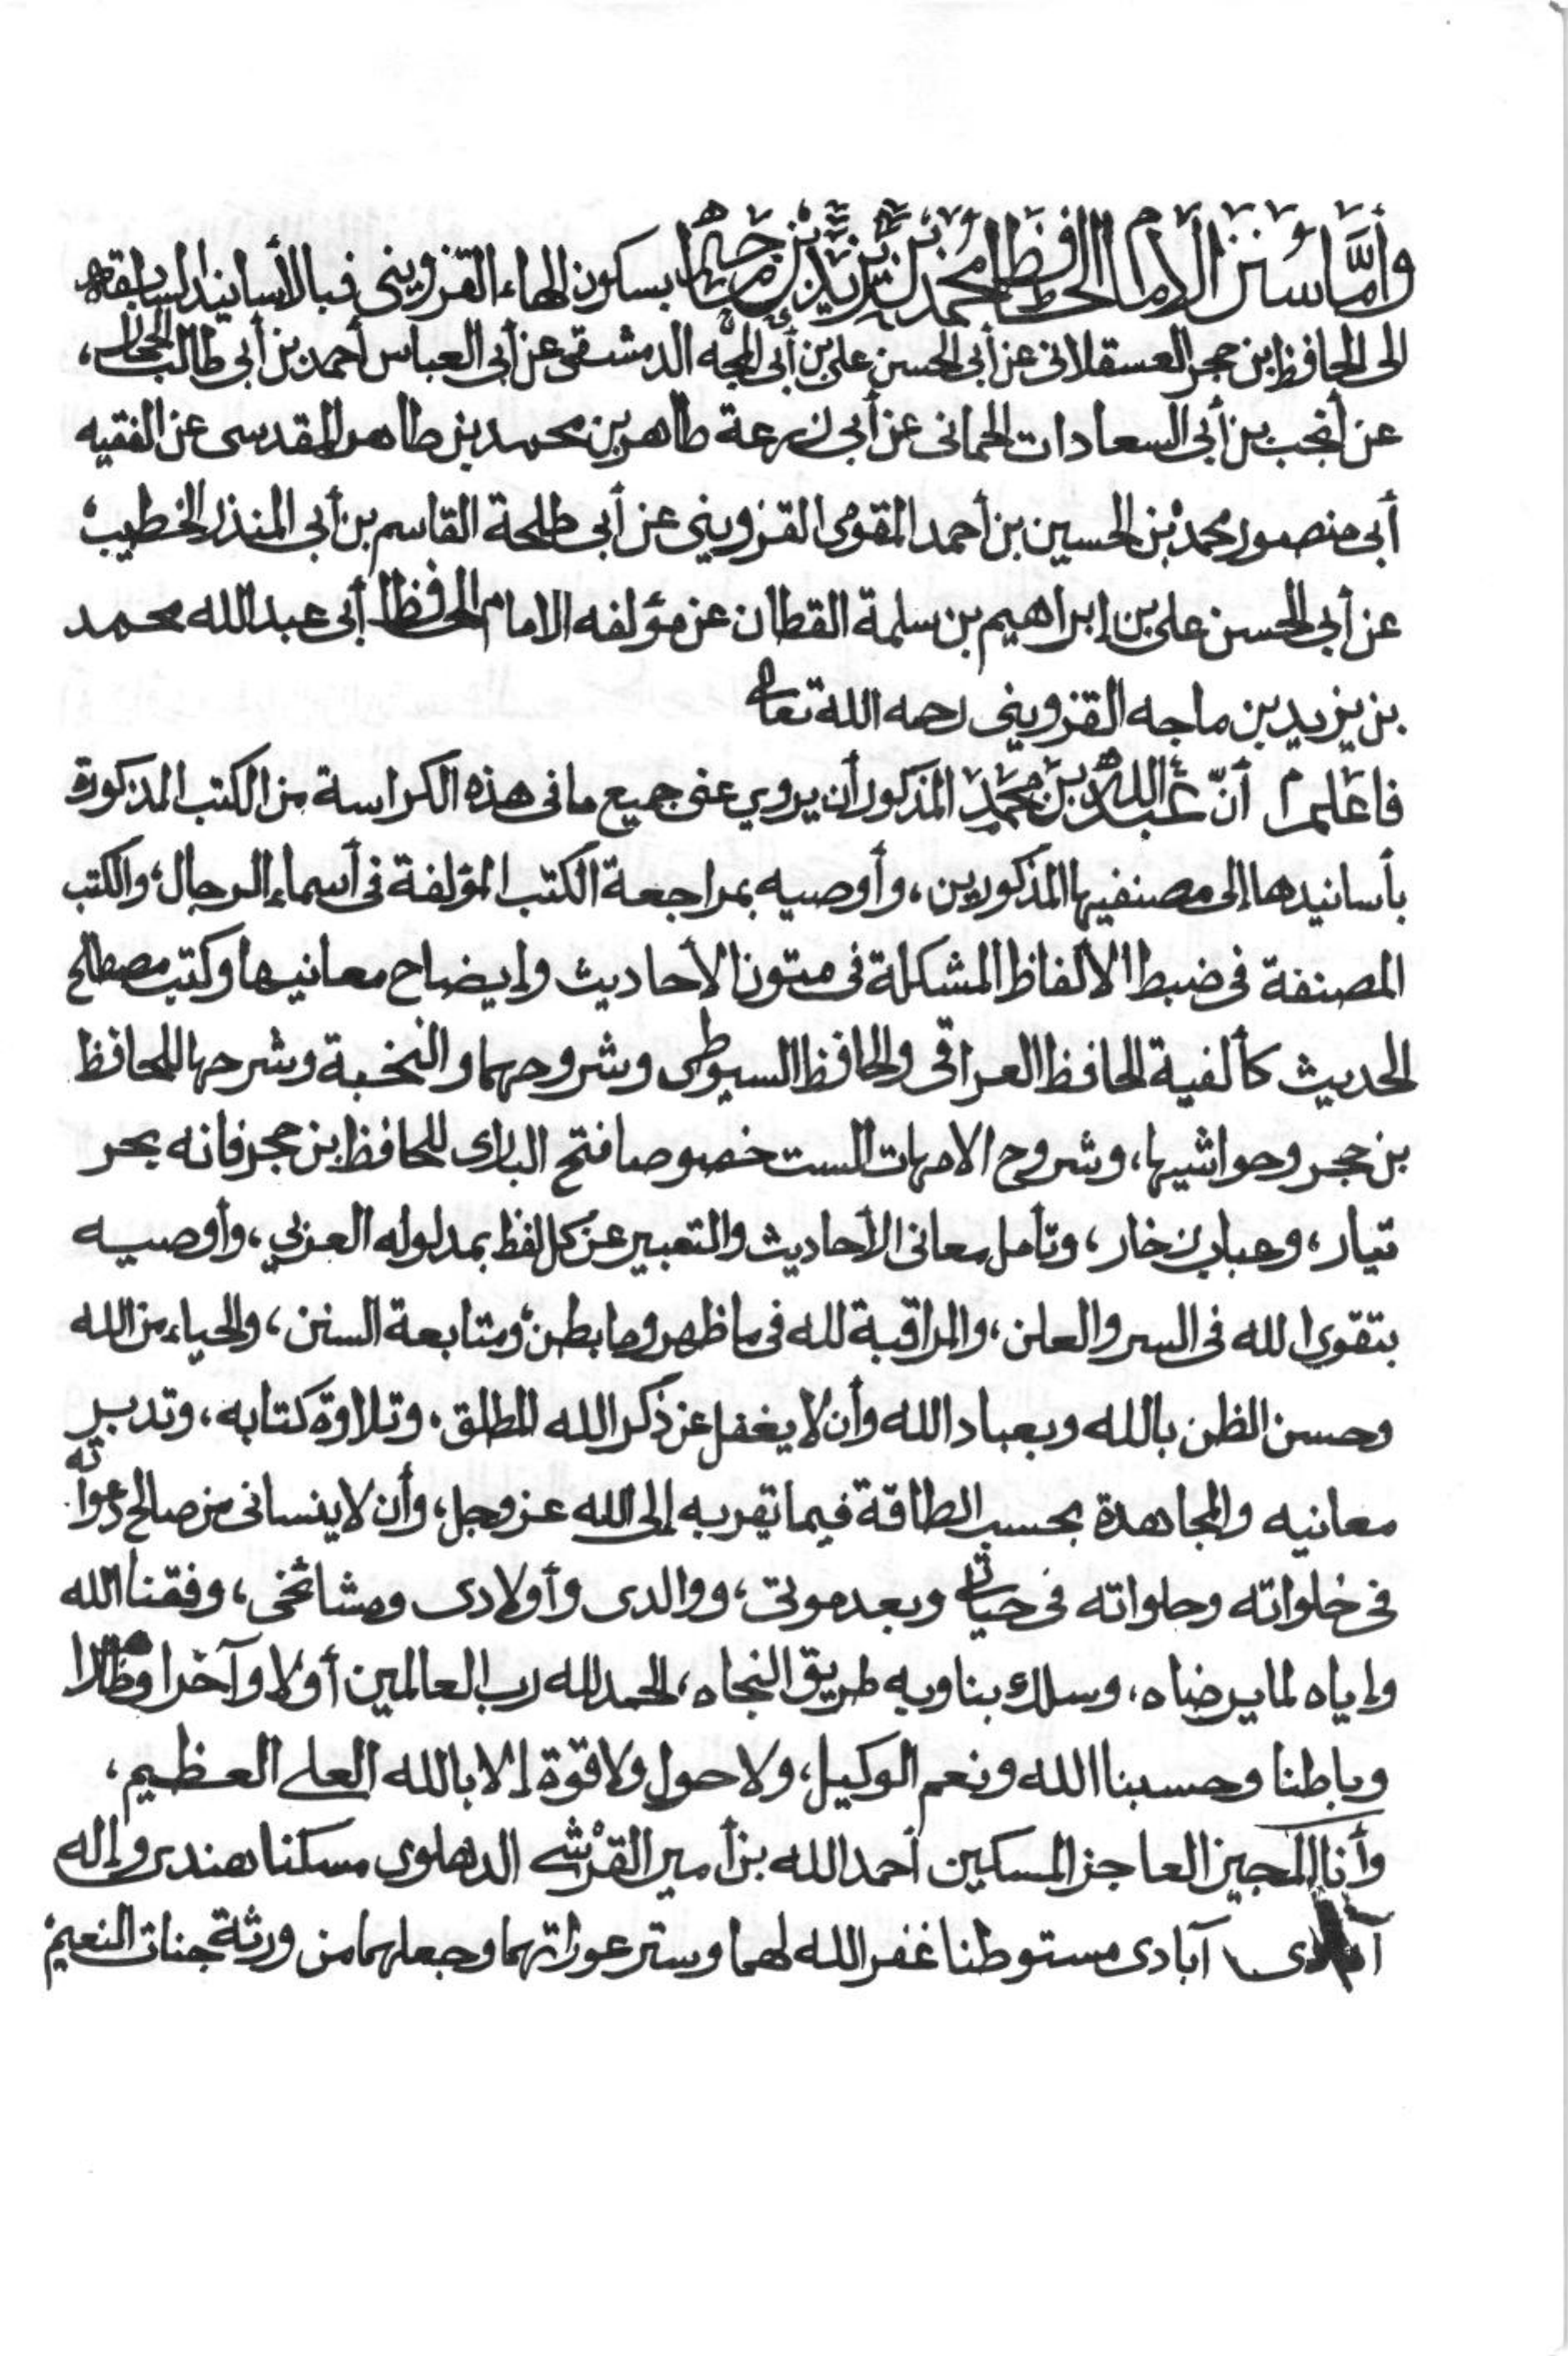 وأمَّا سنن الامام الحافظ محمد بن يزيد بن ماجه بسكون الهاء القزوينى فبالأسانيد السابقة
الى الحافظ ابن حجر العسقلانى عن أبى الحسن على بن أبى المجد الدمشقى عن أبى العباس أحمد بن أبى طالب الحجار،
عن أنجب بن أبى السعادات الحمانى عن أبى زرعة طاهر بن محمد بن طاهر المقدسى عن الفقيه
أبى منصور محمد بن الحسين بن أحمد المقومى القزوينى عن أبى طلحة القاسم بن أبى المنذر الخطيب،
عن أبى الحسن على بن إبراهيم بن سلمة القطان عن مؤلفه الامام الحافظ أبى عبد الله محمد
بن يزيد بن ماجه القزوينى رحمه الله تعالى
فاعلم أنّ عبد الله بن محمد المذكور أن يروي عنى جميع ما فى هذه الكراسة من الكتب المذكورة
بأسانيدها إلى مصنفيها المذكورين، وأوصيه بمراجعة الكتب المؤلفة فى أسماء الرجال، والكتب
المصنفة فى ضبط الألفاظ المشكلة فى متون الأحاديث وإيضاح معانيها وكتب مصطلح
الحديث كألفية الحافظ العراقى والحافظ السيوطى وشروحهما والنخبة وشرحها للحافظ
بن حجر وحواشيها، وشروح الامهات الست خصوصا فتح البارى للحافظ ابن حجر فانه بحر
تيار، وعباب زخار، وتأمل معانى الأحاديث والتعبير عن كل لفظ بمدلوله العربي، وأوصيه
بتقوى الله فى السر والعلن، والمراقبة لله فى ما ظهر وما بطن، ومتابعة السنن، والحياء من الله
وحسن الظن بالله وبعباد الله وأن لا يغفل عن ذكر الله المطلق، وتلاوة كتابه، وتدبر
معانيه والمجاهدة بحسب الطاقة فيما تقربه إلى الله عز وجل، وأن لا ينسانى من صالح دعواته
فى خلواته وجلواته فى حياتى وبعد موتى، ووالدى وأولادى ومشائخى، وفقنا الله
وإياه لما يرضاه، وسلك بنا وبه طريق النجاه، الحمد لله رب العالمين أولا وآخرا وظاهرا
وباطنا وحسبنا الله ونعم الوكيل، ولا حول ولا قوّة إلا بالله العلى العظيم،
وأنا المجيز العاجز المسكين أحمد الله بن أمير القرشى الدهلوى مسكنا هندى وإله
آبادى مستوطنا غفر الله لهما وستر عوراتهما وجعلهما من ورثة جنات النعيم